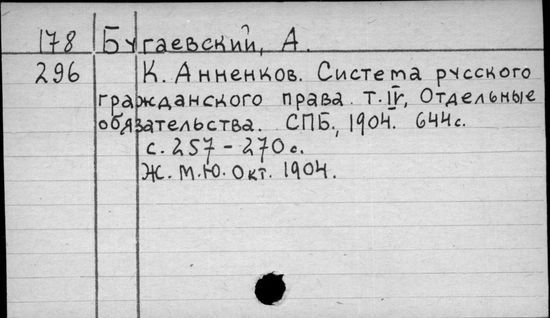 178 Бугаевский, А.
296 К. Анненков. Система русского
гражданского права. т. IV, Отдельные
обязательства. СПБ., 1904. 644 с.
с. 257 - 270 с.
Ж. М. Ю. Окт. 1904.